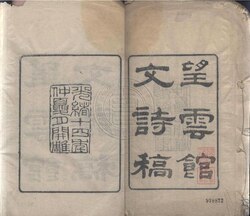 望雲館
文詩稿
光緒十四年
仲夏月開雕